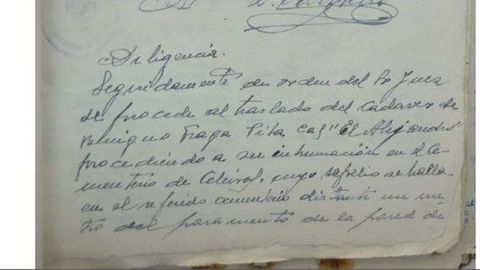 Diligencia.
Seguidamente de orden del Sr Juez
se procede al traslado del cadaver de
Benigno Fraga Pita (a) "El Alejandro"
procediendo a su inhumación en el Ce-
menterio de Celivos, cuyo sepelio se halla
en el referido cementerio distante un me-
tro del paramento de la pared de